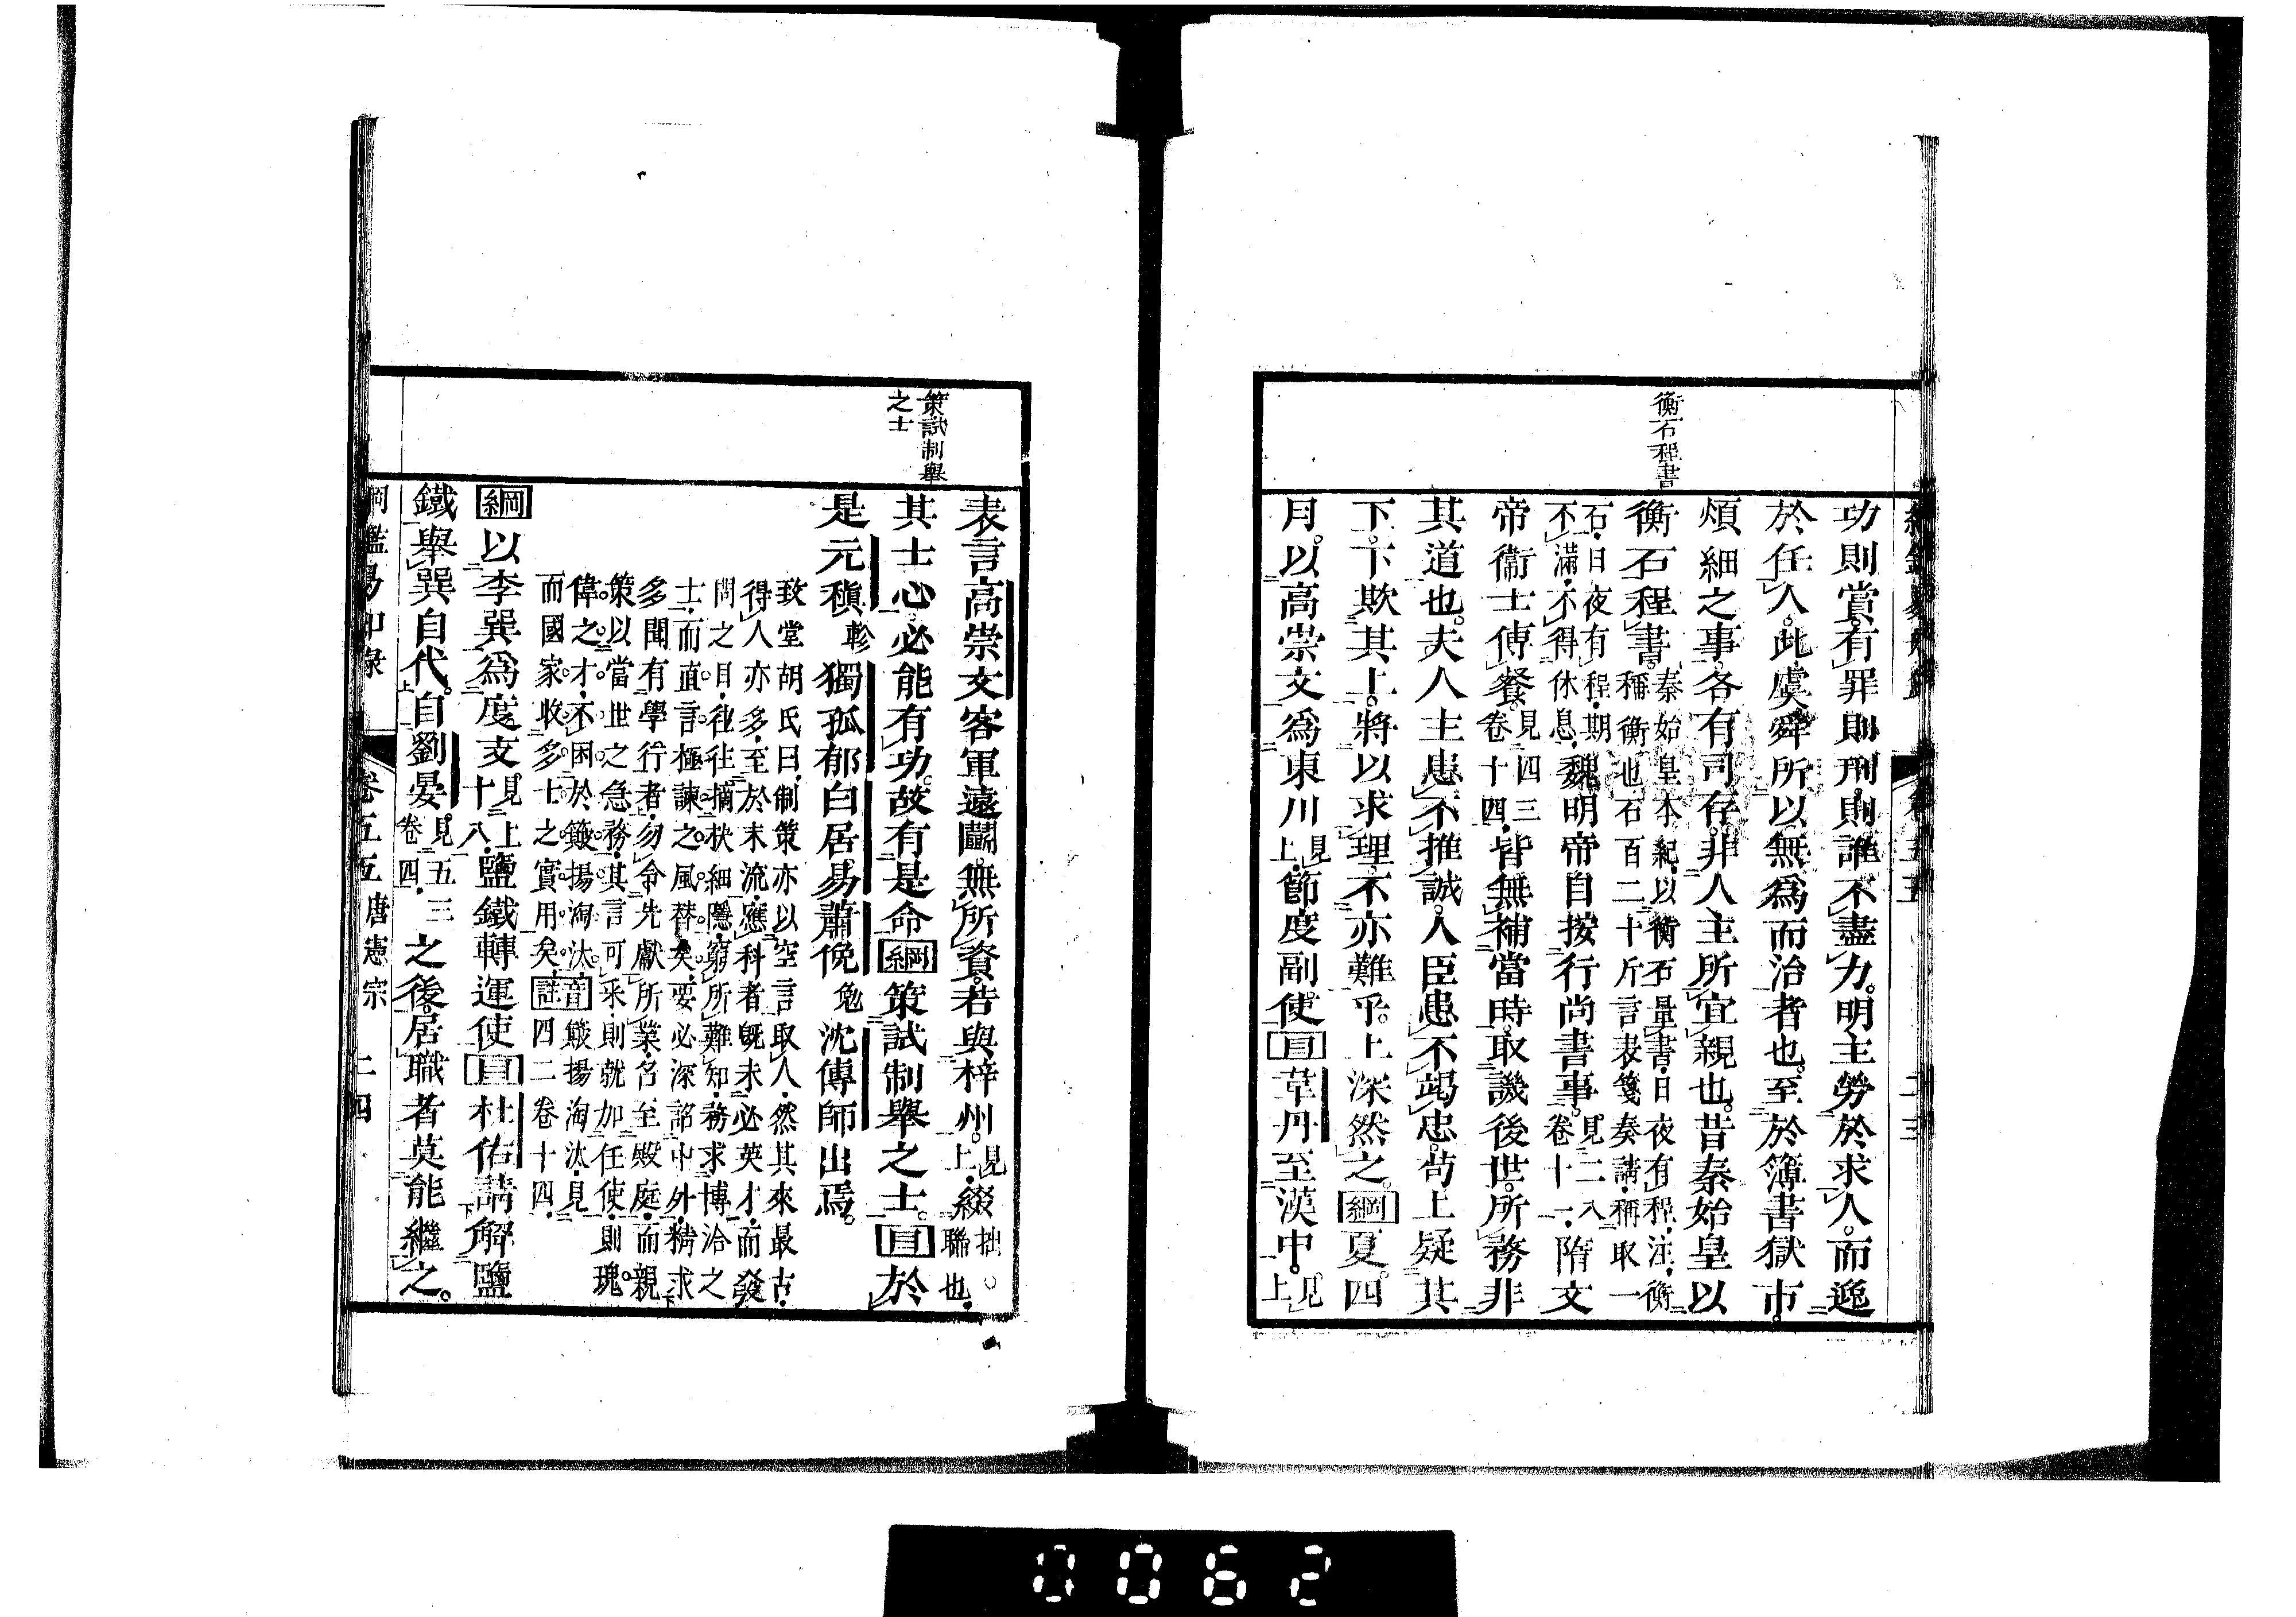 衡石程書
功則賞。有罪則刑。則誰不盡力。明主勞於求人。而逸
於任人。此虞舜所以無爲而治者也。至於簿書獄市。
煩細之事。各有司存。非人主所宜親也。昔秦始皇以
衡石程書。秦始皇本紀、以衡石量書、日夜有程、注、衡
稱衡也、石百二十斤、言表箋奏請、稱取一
石、日夜有程、期
不滿、不得休息、魏明帝自按行尚書事。見二八
卷十一、隋文
帝衞士傳餐。見四三
卷十四、皆無補當時。取譏後世。所務非
其道也。夫人主患不推誠。人臣患不竭忠。苟上疑其
下。下欺其上。將以求理。不亦難乎。上深然之。綱夏。四
月。以高崇文爲東川見
上、節度副使。目韋丹至漢中。見
上
綱鑑易知錄 卷五五 二三
策試制舉
之士
表言高崇文客軍遠鬭。無所資。若與梓州。見
上、綴拙
聯也、
其士心。必能有功。故有是命。綱策試制舉之士。目於
是元稹軫獨孤郁白居易蕭俛免沈傳師出焉。
致堂胡氏曰、制策亦以空言取人、然其來最古、
得人亦多、至於末流、應科者既未必英才、而發
問之目、往往摘抉細隱、窮所難知、務求博洽之
士、而直言極諫之風替矣、要必深詔中外、精求
多聞有學行者、勿命先獻所業、名至殿庭、而親
策以當世之急務、其言可采、則就加任使、則瑰
偉之才、不困於簸揚淘汰。音簸揚淘汰、見
而國家收多士之實用矣。註四二卷十四、
綱以李巽爲度支見上
十八、鹽鐵轉運使目杜佑請解鹽
鐵。舉巽自代。自劉晏見五三
卷四、之後。居職者莫能繼之。
綱鑑易知錄 卷五五 唐憲宗 二四
0062